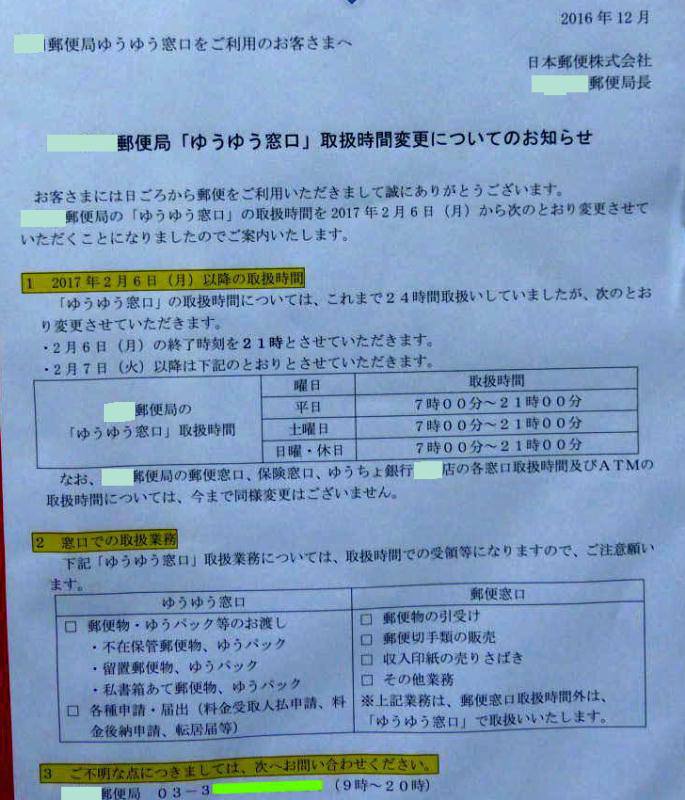 2016年12月
郵便局ゆうゆう窓口をご利用のお客さまへ
日本郵便株式会社
郵便局長
郵便局「ゆうゆう窓口」取扱時間変更についてのお知らせ
お客さまには日ごろから郵便をご利用いただきまして誠にありがとうございます。
郵便局の「ゆうゆう窓口」の取扱時間を2017年2月6日（月）から次のとおり変更させて
いただくことになりましたのでご案内いたします。
1　2017年2月6日（月）以降の取扱時間
「ゆうゆう窓口」の取扱時間については、これまで24時間取扱いしていましたが、次のとお
り変更させていただきます。
・2月6日（月）の終了時刻を21時とさせていただきます。
・2月7日（火）以降は下記のとおりとさせていただきます。
郵便局の
「ゆうゆう窓口」取扱時間
曜日　取扱時間
平日　7時00分～21時00分
土曜日　7時00分～21時00分
日曜・休日　7時00分～21時00分
なお、郵便局の郵便窓口、保険窓口、ゆうちょ銀行店の各窓口取扱時間及びATMの
取扱時間については、今まで同様変更はございません。
2　窓口での取扱業務
下記「ゆうゆう窓口」取扱業務については、取扱時間での受領等になりますので、ご注意願い
ます。
ゆうゆう窓口
□ 郵便物・ゆうパック等のお渡し
・不在保管郵便物、ゆうパック
・留置郵便物、ゆうパック
・私書箱あて郵便物、ゆうパック
□ 各種申請・届出（料金受取人払申請、料
金後納申請、転居届等）
郵便窓口
□ 郵便物の引受け
□ 郵便切手類の販売
□ 収入印紙の売りさばき
□ その他業務
※上記業務は、郵便窓口取扱時間外は、
「ゆうゆう窓口」で取扱いいたします。
3　ご不明な点につきましては、次へお問い合わせください。
郵便局 03－3（9時～20時）